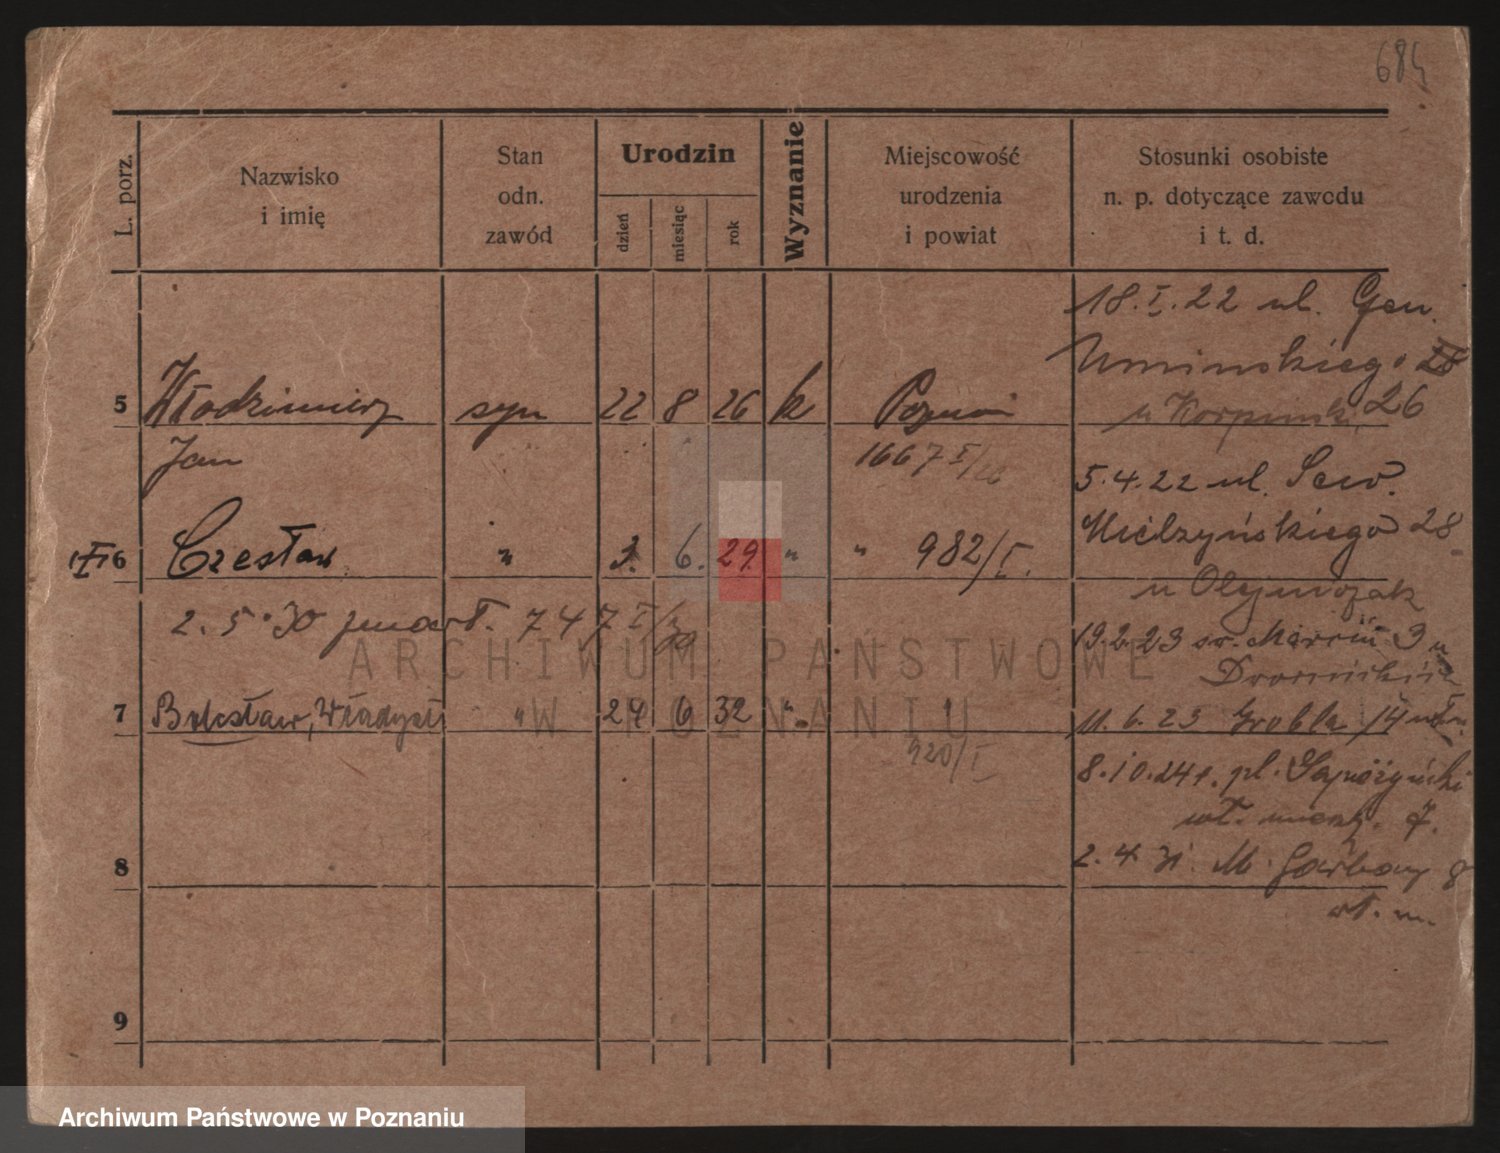 684
L. porz.
Nazwisko
i imię
Stan
odn.
zawód
Urodzin
dzień
miesiąc
rok
Wyznanie
Miejscowość
urodzenia
i powiat
Stosunki osobiste
n. p. dotyczące zawodu
i t. d.
18.I.22 ul. Gen.
Umińskiego
u 26
5 Włodzimierz syn 22 8 26 k Poznań
Jan 1667 I/26
5.4.22 ul. Sew.
Mielżyńskiego 28
6 Czesław " 3. 6. 29. " " 982/I.
u Olejniczak
2. 5. 30 zmarł. 747 I/30
19.2.23 św. Marcin 3 u
7 Bolesław, Władysł " 24 6 32 "
920/I
11.6.23 Grobla 14
8.10.24 r. pl. Sapieżyński
wł. miesz. 7.
8
2.4.31. M. Garbary 8
wł. m.
9
ARCHIWUM PAŃSTWOWE
W POZNANIU
Archiwum Państwowe w Poznaniu